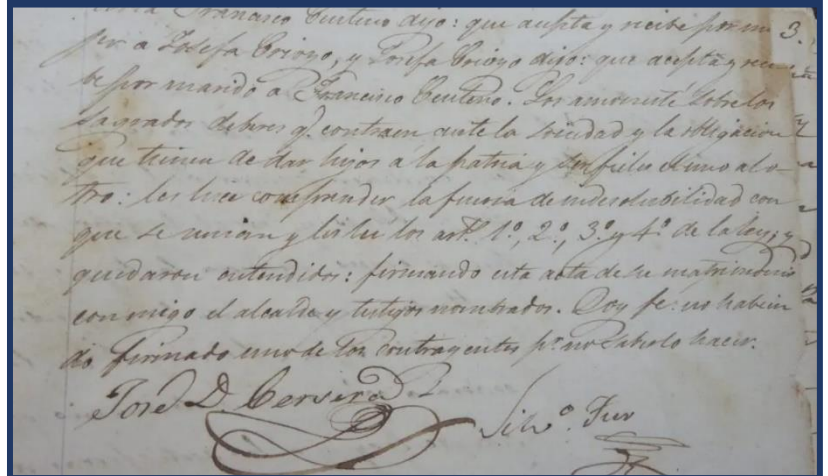 Francisco Centeno dijo: que acepta y recibe por mu 3.
jer a Josefa Orioyo, y Josefa Orioyo dijo: que acepta y reci-
be por marido a Francisco Centeno. Los amonesté sobre los
sagrados deberes q.e contraen ante la sociedad y la obligacion
que tienen de dar hijos á la patria y ser fieles el uno al o-
tro: les hice comprender la fuerza de indisolubilidad con
que se unian y les lei los art.s 1º, 2º, 3º y 4º de la ley, y
quedaron entendidos: firmando esta acta de su matrimonio
conmigo el alcalde y testigos nombrados. Doy fe: no habien
do firmado uno de los contrayentes p.r no saberlo hacer.
José D. Cervera